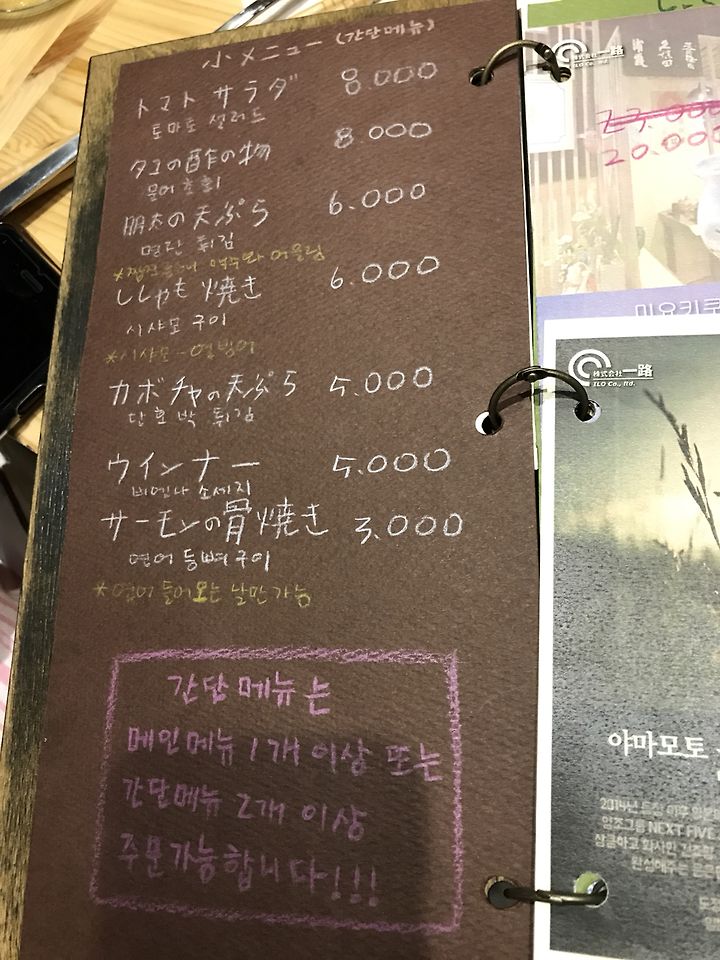 小メニュー (간단메뉴)
トマト サラダ 8.000
토마토 샐러드
タコの酢の物 8.000
문어 초회
明太の天ぷら 6.000
명란 튀김
맥주와 어울림
ししゃも 焼き 6.000
시샤모 구이
*시샤모-열빙어
カボチャの天ぷら 5.000
단호박 튀김
ウインナー 5.000
비엔나 소세지
サーモンの骨焼き 3.000
연어 등뼈구이
*연어 들어오는 날만 가능
간단 메뉴는
메인메뉴 1개 이상 또는
간단메뉴 2개 이상
주문가능합니다!!!
株式会社 一路
ILO Co., ltd.
20.000
株式会社 一路
ILO Co., ltd.
야마모토
2014년
NEXT FIVE